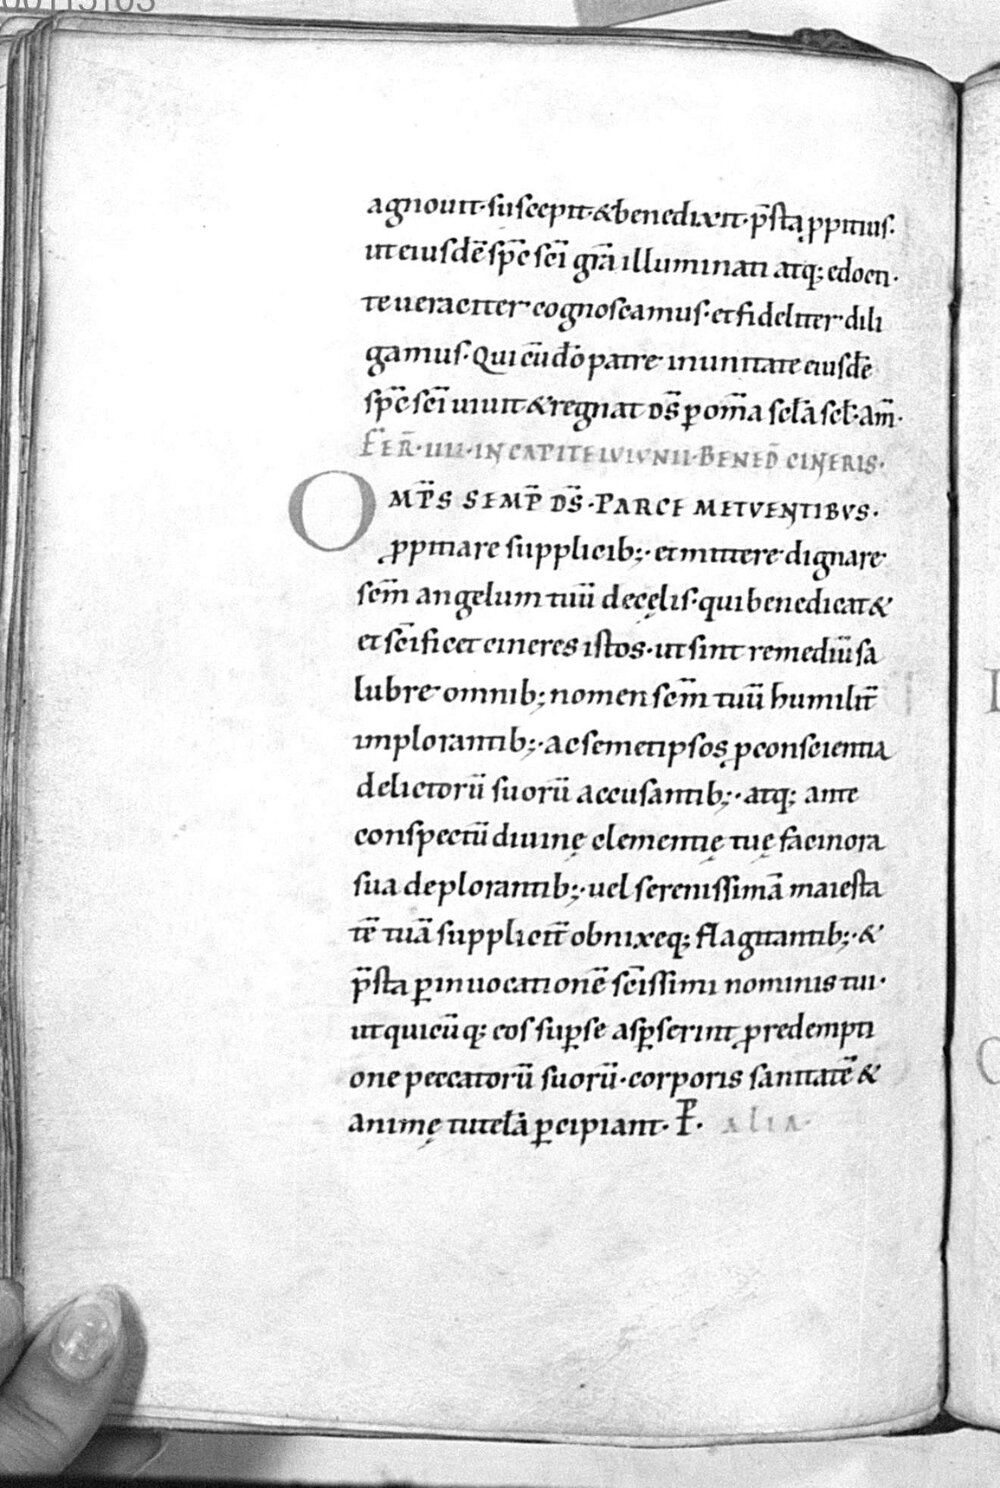 agnouit·suscepit·&benedixit·p̄stą ꝓpitius·
ut eiusdē sp̄c sc̄i gr̄a illuminati atq; edocti·
te ueraciter cognoscamus·et fideliter dili
gamus·Qui cū dō patre in unitate eiusdē
sp̄c sc̄i uiuit & regnat d̄s ꝑ om̄a sc̄la sc̄l·am̄·
FER̄·IIII·IN CAPITE IEIVNII·BENED̄ CINERIS·
OMP̄S SEMP̄ D̄S·PARCE METVENTIBVS·
ꝓpitiare supplicib;·et mittere dignare
sc̄m angelum tuū de cęlis·qui benedicat &
et sc̄ificet cineres istos·ut sint remediū sa
lubre omnib; nomen sc̄m tuū humilit̄
implorantib;·ac semetipsos ꝓ conscientia
delictorū suorū accusantib;·atq; ante
conspectū diuinę clementię tuę facinora
sua deplorantib;·uel serenissimā maiesta
tē tuā supplicit̄ obnixeq; flagitantib;·&
p̄sta ꝑ inuocationē sc̄issimi nominis tui·
ut quicūq; eos suꝑ se asꝑserint ꝓ redempti
one peccatorū suorū·corporis sanitatē &
animę tutelā ꝑcipiant·P̄·ALIA·